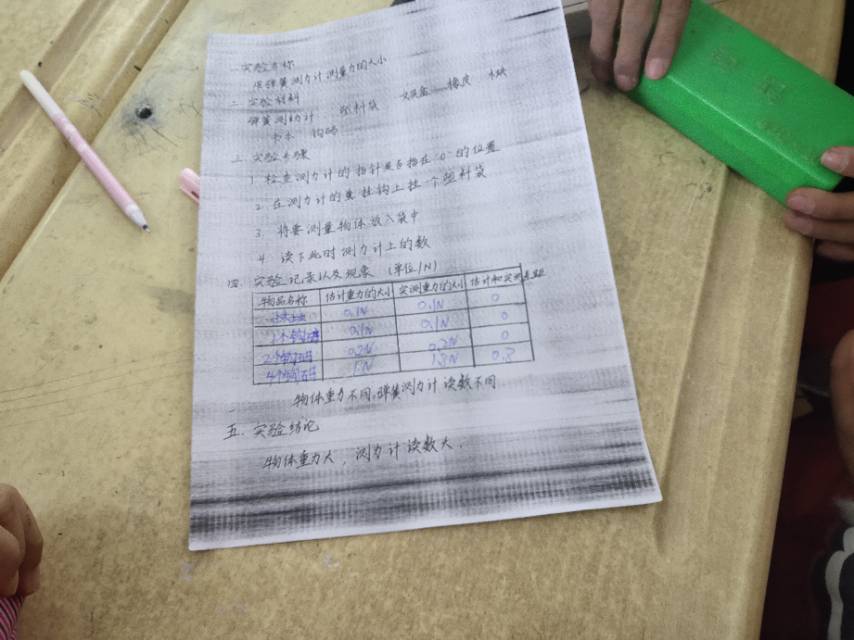 一 实验名称
用弹簧测力计测重力的大小
二 实验材料
弹簧测力计 塑料袋 文具盒 橡皮 木块
书本 钩码
三 实验步骤
1. 检查测力计的指针是否指在"0"的位置
2. 在测力计的重挂钩上挂一个塑料袋
3. 将要测量物体放入袋中
4. 读下此时测力计上的数
四 实验记录以及现象 (单位/N)
物品名称 估计重力的大小 实测重力的大小 估计和实测差距
0.1N 0.1N 0
1个钩码 0.1N 0.1N 0
2个钩码 0.2N 0.2N 0
4个钩码 1N 1.8N 0.8
物体重力不同,弹簧测力计读数不同
五. 实验结论
物体重力大, 测力计读数大.